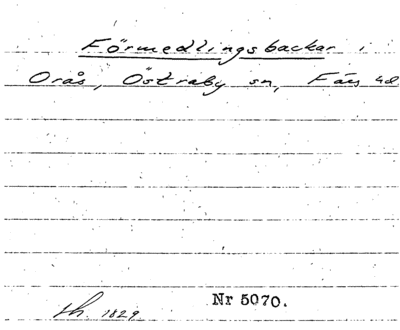 Förmedlingsbackar i
Orås, Östraby sn, Färs hd
Nr 5070.
1829